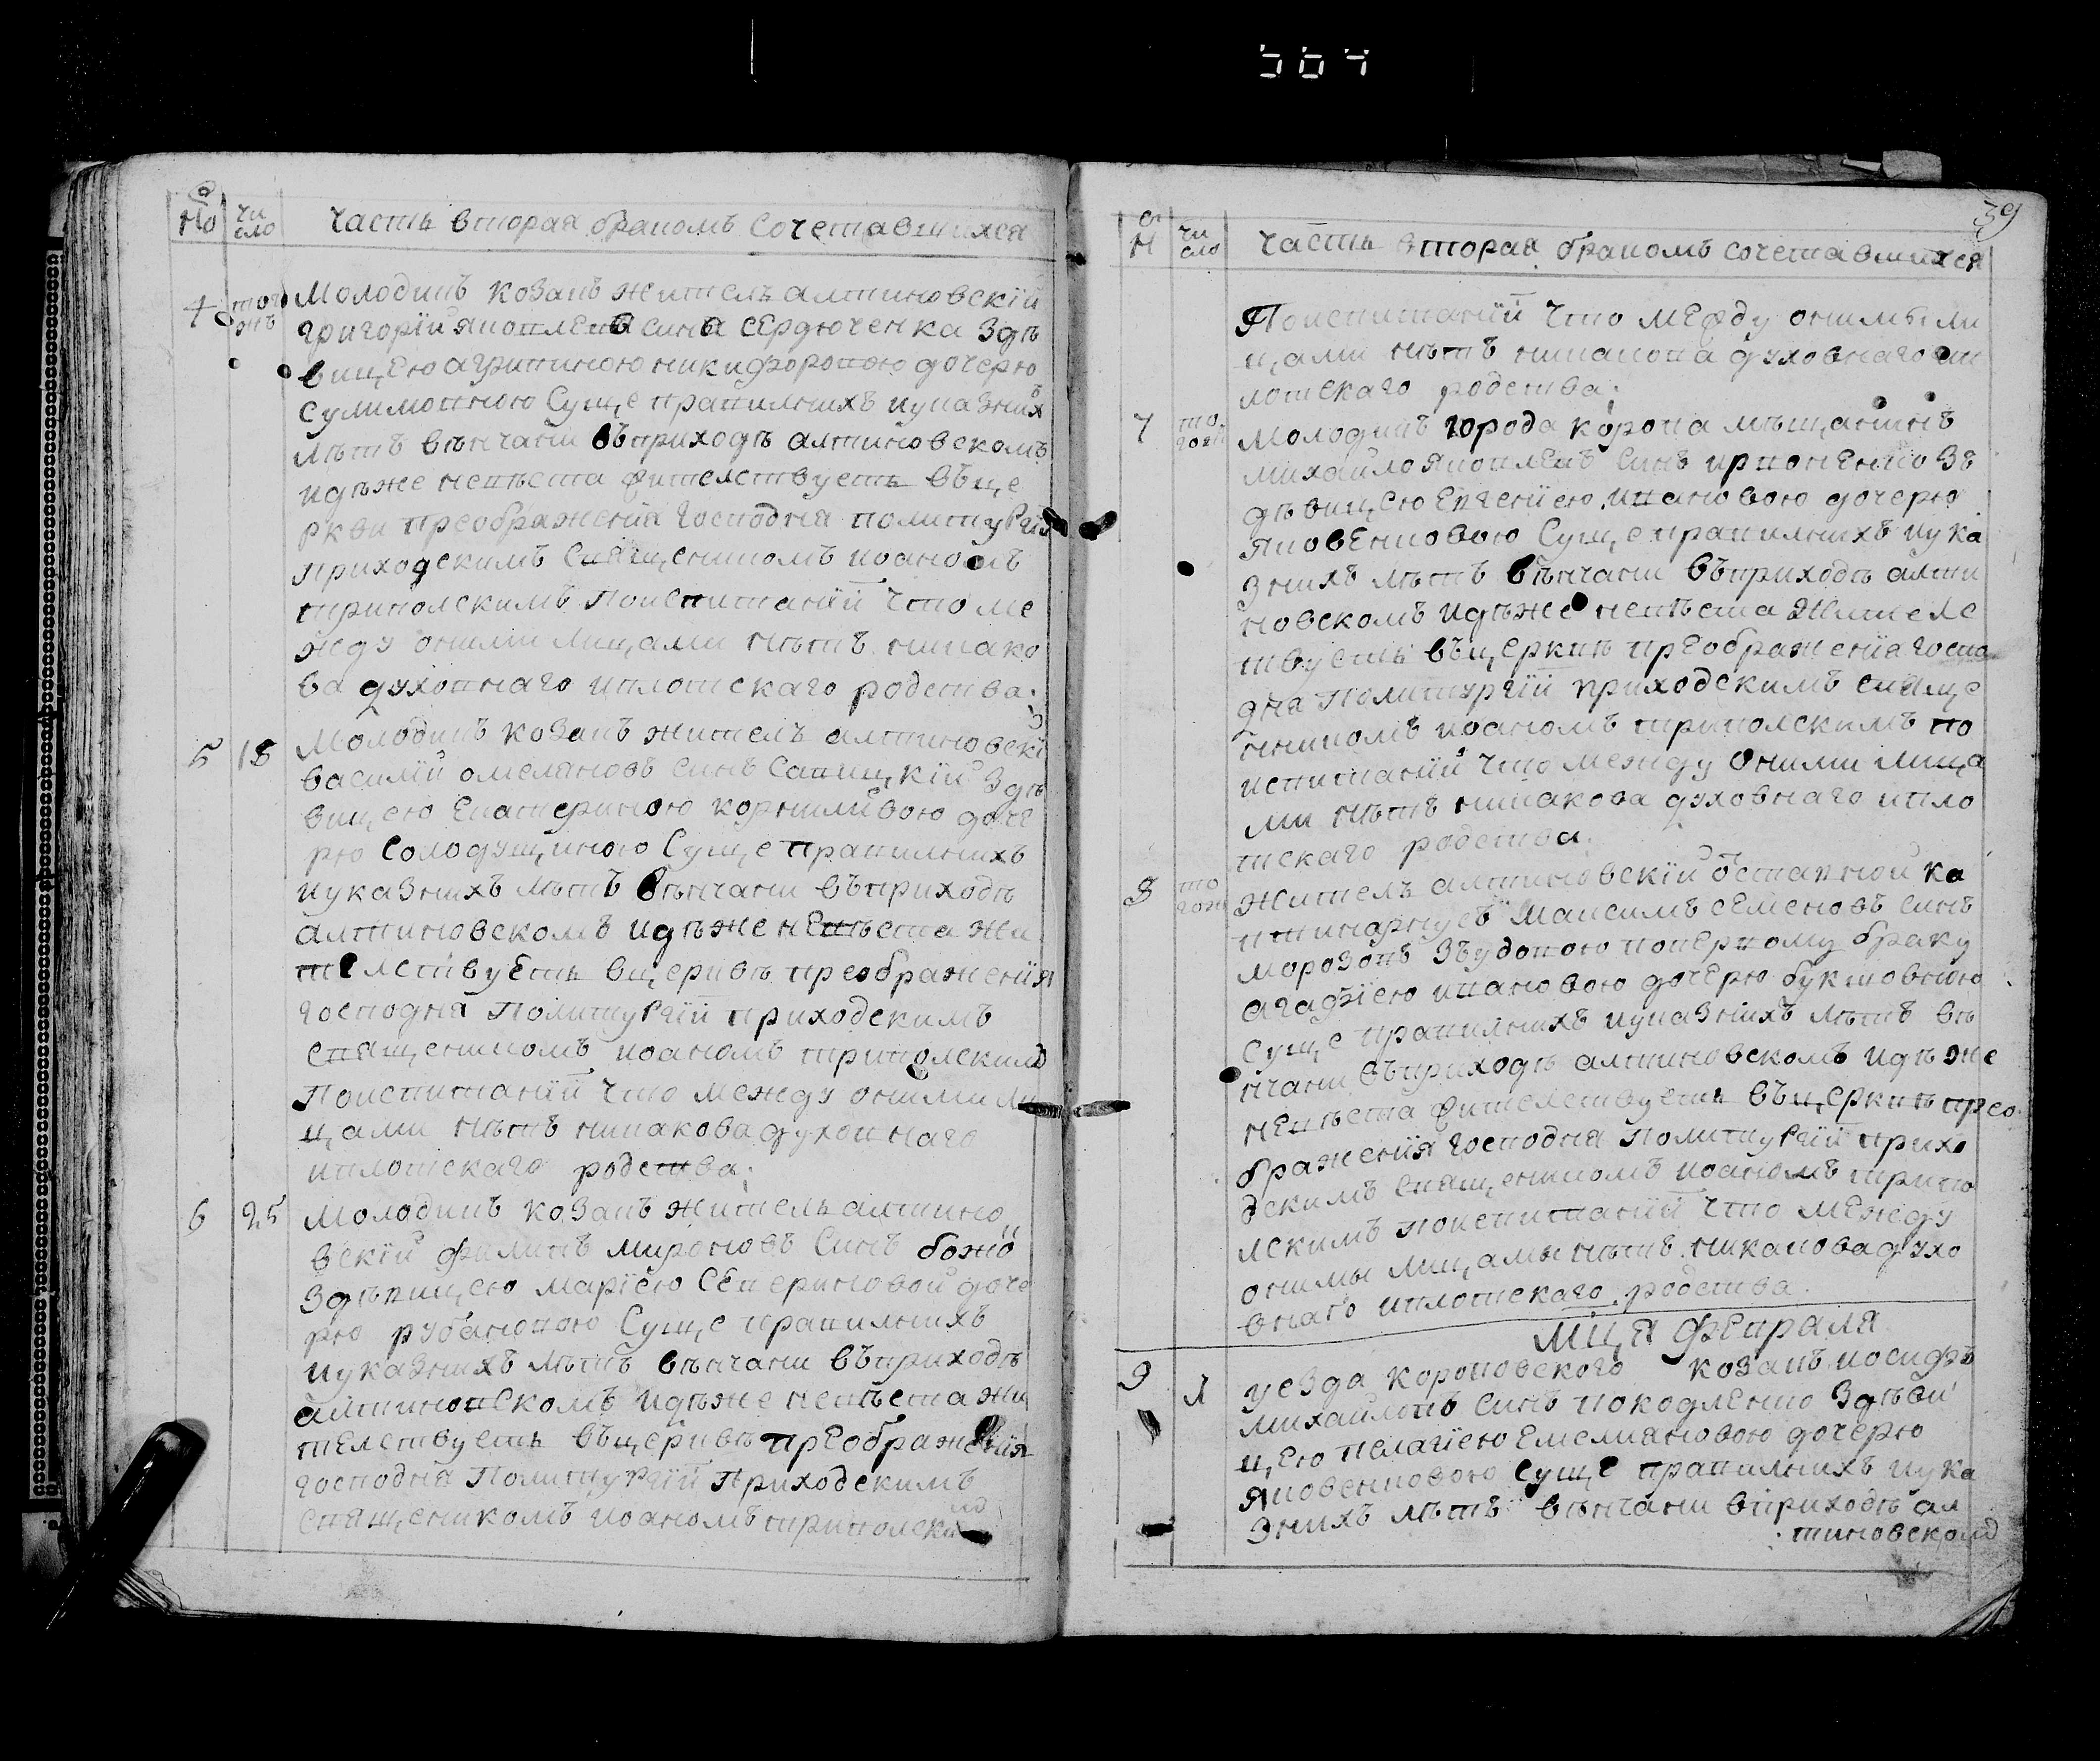 564
No
чи
сло
часть вторая бракомъ сочетавшихся
4
того
жъ
Молодикъ козакъ жителъ алтиновскїй
григорїй яковлевъ синъ сердюченка здѣ
вицею агрипиною никифоровою дочерю
сулимовною Суще правилнихъ иуказних
лѣтъ вѣнчани въприходѣ алтиновскомъ
идѣже невѣста жителствуетъ въце
ркви преображенїя господня политургїи
приходскимъ священикомъ иоаномъ
триполскимъ Поиспитанїй что ме
жду оними лицами нѣтъ никако
ва духовнаго иплотскаго родства.
5
18
Молодикъ козакъ жителъ алтиновскі
василїй омеляновъ синъ савицкїй здѣ
вицею Екатериною корниливою доче
рю солодущиною Суще правилнихъ
иуказнихъ лѣтъ вѣнчани въприходѣ
алтиновскомъ идѣже невѣста жи
телствуетъ вцерквѣ преображенїя
господня Политургїй приходскимъ
священикомъ иоаномъ триполским
Поиспитанїй что между оними ли
цами нѣтъ никакова духовнаго
иплотскаго родства.
6
25
Молодикъ козакъ житель алтино
вскїй филипъ мироновъ Синъ божо
здѣвицею марїею Севериновой доче
рю рубановою Суще правилнихъ
иуказнихъ лѣтъ вѣнчани въприходѣ
алтиновскомъ идѣже невѣста жи
телствуетъ въцерквѣ преображенїя
господня Политургїй Приходскимъ
священикомъ иоаномъ триполски
39
чи
сло
часть вторая бракомъ сочетавшихся
Поиспитанїй что между онимы ли
цами нѣтъ никакова духовнаго ип
лотскаго родства.
7
то
гож
Молодикъ города коропа мѣщанинъ
михайло яковлевъ синъ зъ
дѣвицею Евгенїею ивановою дочерю
яковенковою Суще правилнихъ иука
знихъ лѣтъ вѣнчани въприходѣ алти
новскомъ идѣже невѣста жителс
твуетъ въцерквѣ преображенїя госпо
дня Политургїй приходскимъ свяще
нникомъ иоаномъ триполскимъ по
испитанїй что между оними лица
ми нѣтъ никакова духовнаго ипло
тскаго родства.
8
то
гож
жителъ алтиновскїй отставной ка
Максимъ семеновъ синъ
морозовъ зъудовою поперкому браку
агафїею ивановою дочерю букшовною
суще правилнихъ иуказнихъ лѣтъ вѣ
нчани въприходѣ алтиновскомъ идѣже
невѣста жителствуетъ въцерквѣ прео
бражения господня политургїй прихо
дскимъ священикомъ иоаномъ трипо
лскимъ поиспитанїй что между
онимы лицамы нѣтъ никакова духо
внаго иплотскаго родства.
мця февраля
9
1
уезда короповского козакъ иосифъ
михайловъ синъ здѣви
цею пелагїею Емелияновою дочерю
яковенковою суще правилнихъ иука
знихъ лѣтъ вѣнчани вприходѣ ал
тиновском